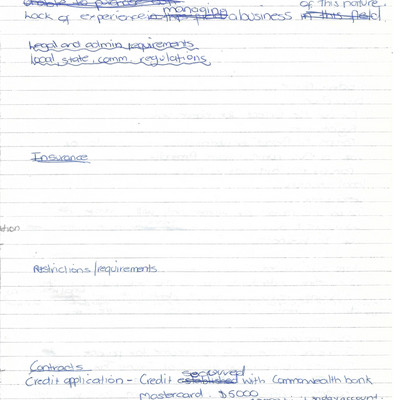 of this nature.
managing
Lack of experience a business in this field
Legal and admin requirements
Local, state, comm. regulations
Insurance
Restrictions/requirements
Contracts
secured
Credit application - Credit established with Commonwealth bank
Mastercard. $5000